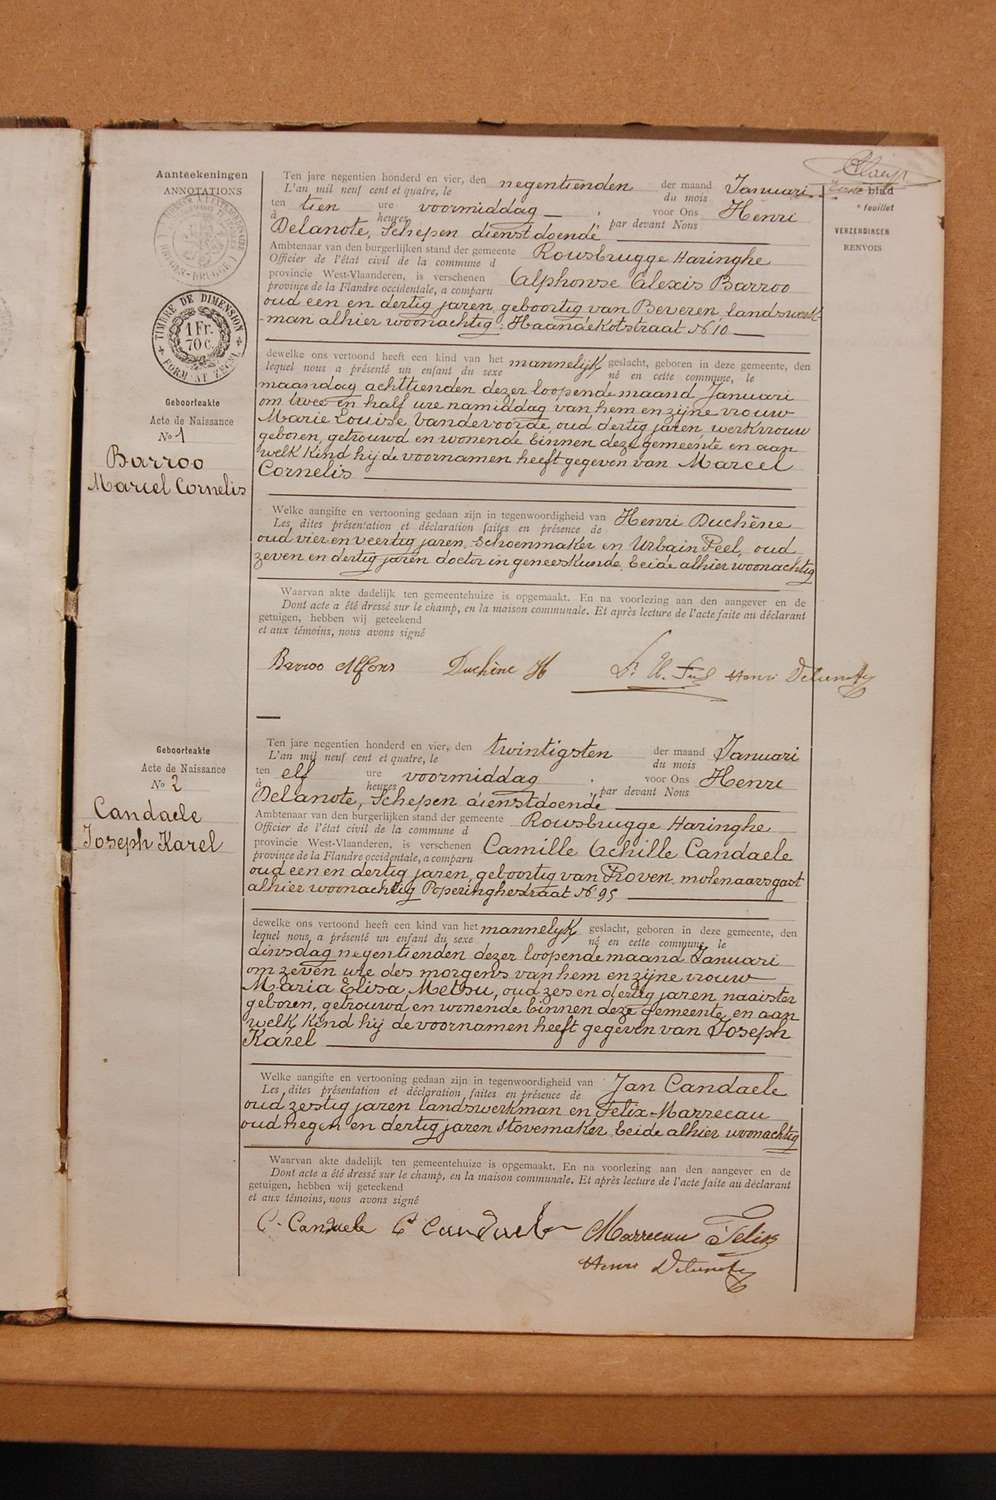 Eerste blad
e feuillet
Aanteekeningen
ANNOTATIONS
VERZENDINGEN
RENVOIS
TIMBRE DE DIMENSION
1 Fr.
70 c.
FORMAAT ZEGEL
Geboorteakte
Acte de Naissance
No 1
Barroo
Marcel Cornelis
Ten jare negentien honderd en vier, den negentienden der maand Januari
L'an mil neuf cent et quatre, le du mois
ten tien ure voormiddag voor Ons Henri
à heures par devant Nous
Delanote, Schepen dienstdoende
Ambtenaar van den burgerlijken stand der gemeente Rousbrugge Haringhe
Officier de l'état civil de la commune d
provincie West-Vlaanderen, is verschenen Alphonse Alexis Barroo
province de la Flandre occidentale, a comparu
oud een en dertig jaren, geboortig van Beveren, landswerk-
man alhier woonachtig: Haandekotstraat No 10
dewelke ons vertoond heeft een kind van het mannelyk geslacht, geboren in deze gemeente, den
lequel nous a présenté un enfant du sexe né en cette commune, le
maandag achttienden dezer loopende maand Januari
om twee en half ure namiddag van hem en zijne vrouw
Marie Louise Vandevoorde, oud dertig jaren, werkvrouw
geboren, getrouwd en wonende binnen deze gemeente en aan
welk kind hij de voornamen heeft gegeven van Marcel
Cornelis
Welke aangifte en vertooning gedaan zijn in tegenwoordigheid van Henri Duchêne
Les dites présentation et déclaration faites en présence de
oud vier en veertig jaren, schoenmaker en Urbain Feel, oud
zeven en dertig jaren doctor in geneeskunde, beide alhier woonachtig
Waarvan akte dadelijk ten gemeentehuize is opgemaakt. En na voorlezing aan den aangever en de
Dont acte a été dressé sur le champ, en la maison communale. Et après lecture de l'acte faite au déclarant
getuigen, hebben wij geteekend
et aux témoins, nous avons signé
Barroo Alfons Duchêne H Henri Delanote
Geboorteakte
Acte de Naissance
No 2
Candaele
Joseph Karel
Ten jare negentien honderd en vier, den twintigsten der maand Januari
L'an mil neuf cent et quatre, le du mois
ten elf ure voormiddag voor Ons Henri
à heures par devant Nous
Delanote, Schepen dienstdoende
Ambtenaar van den burgerlijken stand der gemeente Rousbrugge Haringhe
Officier de l'état civil de la commune d
provincie West-Vlaanderen, is verschenen Camille Achille Candaele
province de la Flandre occidentale, a comparu
oud een en dertig jaren, geboortig van Proven, molenaarsgast
alhier woonachtig Poperinghestraat No 95
dewelke ons vertoond heeft een kind van het mannelyk geslacht, geboren in deze gemeente, den
lequel nous a présenté un enfant du sexe né en cette commune, le
dinsdag negentienden dezer loopende maand Januari
om zeven ure des morgens van hem en zijne vrouw
Maria Elisa Metsu, oud zes en dertig jaren, naaister
geboren, getrouwd en wonende binnen deze gemeente, en aan
welk kind hij de voornamen heeft gegeven van Joseph
Karel
Welke aangifte en vertooning gedaan zijn in tegenwoordigheid van Jan Candaele
Les dites présentation et déclaration faites en présence de
oud zestig jaren landswerkman en Felix Marrecau
oud negen en dertig jaren stovemaker, beide alhier woonachtig
Waarvan akte dadelijk ten gemeentehuize is opgemaakt. En na voorlezing aan den aangever en de
Dont acte a été dressé sur le champ, en la maison communale. Et après lecture de l'acte faite au déclarant
getuigen, hebben wij geteekend
et aux témoins, nous avons signé
C. Candaele Candaele Marrecau Felix
Henri Delanote